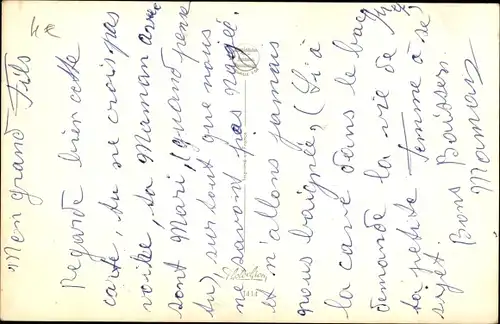 Mon grand Fils
Regarde bien cette
carte, tu ne crois pas
voire, ta Maman avec
sont Mari, (quand pense
tu) surtout que nous
ne savont pas nagée.
et n'allons jamais
nous baignée, (Si à
la cave dans le bac
demande la vie de
ta petite femme à se
sujet.
Bons Baisser.
Maman